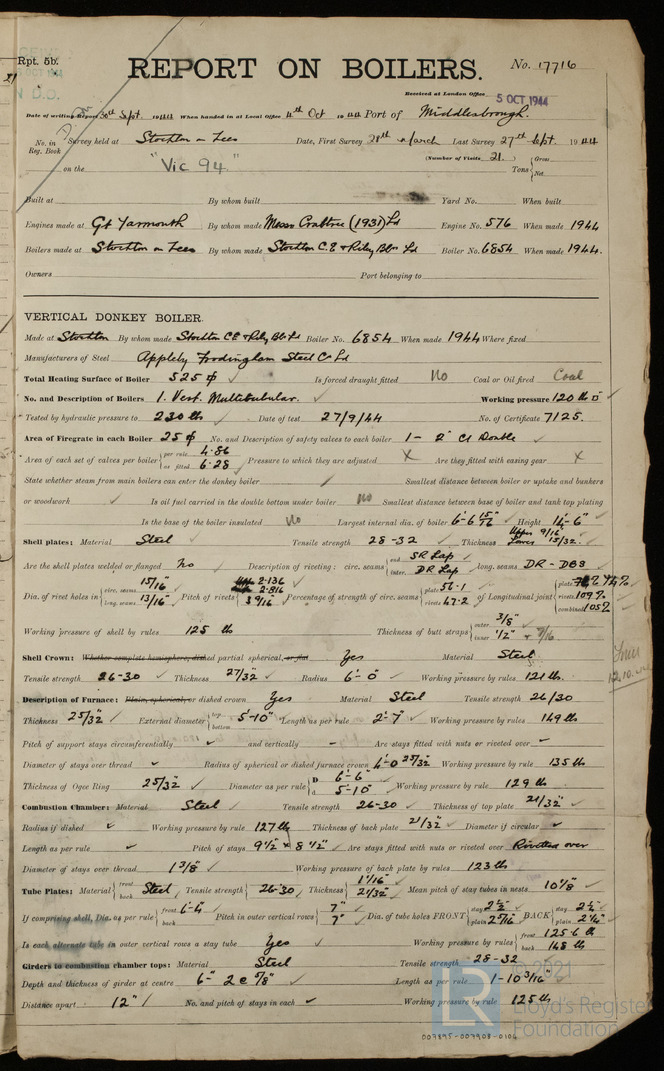 Rpt. 5b.
REPORT ON BOILERS.
No. 17716
Received at London Office 5 OCT 1944
Date of writing Report 30th Sept. 1944 When handed in at Local Office 4th Oct 1944 Port of Middlesbrough.
No. in Reg. Book Survey held at Stockton on Tees Date, First Survey 28th March Last Survey 27th Sept. 1944
(Number of Visits 21.)
on the "Vic 94" Tons { Gross Net
Built at By whom built Yard No. When built
Engines made at Gt Yarmouth By whom made Messrs Crabtree (1931) Ld Engine No. 576 When made 1944
Boilers made at Stockton on Tees By whom made Stockton C.E & Riley Blrs Ld Boiler No. 6854 When made 1944.
Owners Port belonging to
VERTICAL DONKEY BOILER.
Made at Stockton By whom made Stockton CE & Riley Blr Ld Boiler No. 6854 When made 1944 Where fixed
Manufacturers of Steel Appleby Frodingham Steel Co Ld
Total Heating Surface of Boiler 525 Is forced draught fitted No Coal or Oil fired Coal
No. and Description of Boilers 1. Vert. Multitubular. Working pressure 120 lb
Tested by hydraulic pressure to 230 lbs Date of test 27/9/44 No. of Certificate 7125.
Area of Firegrate in each Boiler 25 No. and Description of safety valves to each boiler 1 - 2" Cl Double
Area of each set of valves per boiler { per rule 4.86 as fitted 6.28 Pressure to which they are adjusted X Are they fitted with easing gear X
State whether steam from main boilers can enter the donkey boiler Smallest distance between boiler or uptake and bunkers
or woodwork Is oil fuel carried in the double bottom under boiler No Smallest distance between base of boiler and tank top plating
Is the base of the boiler insulated No Largest internal dia. of boiler 6'-6 15/16" Height 14'-6"
Shell plates: Material Steel Tensile strength 28-32 Thickness Upper 9/16" Lower 15/32"
Are the shell plates welded or flanged No Description of riveting: circ. seams { end SR Lap inter. DR Lap long. seams DR - DBS
Dia. of rivet holes in { circ. seams 15/16" long. seams 13/16" Pitch of rivets 2.136 2.816 3 9/16" Percentage of strength of circ. seams { plate 56.1 rivets 47.2 of Longitudinal joint { plate 77% rivets 109% combined 105%
Working pressure of shell by rules 125 lbs Thickness of butt straps { outer 3/8" inner 1/2" + 7/16
Shell Crown: Whether complete hemisphere, dished partial spherical, or flat Yes Material Steel
Tensile strength 26-30 Thickness 27/32" Radius 6'-0" Working pressure by rules 121 lb.
Description of Furnace: Plain, spherical, or dished crown Yes Material Steel Tensile strength 26/30
Thickness 25/32" External diameter { top bottom 5'-10" Length as per rule 2'-7" Working pressure by rules 149 lb
Pitch of support stays circumferentially and vertically - Are stays fitted with nuts or riveted over
Diameter of stays over thread Radius of spherical or dished furnace crown 4'-0 25/32" Working pressure by rule 135 lb
Thickness of Ogee Ring 25/32" Diameter as per rule { D 6'-6" d 5'-10" Working pressure by rule 129 lb
Combustion Chamber: Material Steel Tensile strength 26-30 Thickness of top plate 21/32"
Radius if dished Working pressure by rule 127 lb Thickness of back plate 21/32" Diameter if circular
Length as per rule Pitch of stays 9 1/2" x 8 1/2" Are stays fitted with nuts or riveted over Rivetted over
Diameter of stays over thread 1 3/8" Working pressure of back plate by rules 123 lb
Tube Plates: Material { front back Steel Tensile strength 26-30 Thickness { 1 1/16" 21/32" Mean pitch of stay tubes in nests 10 1/8"
If comprising shell, Dia. as per rule { front 6'-4" back Pitch in outer vertical rows { 7" 7" Dia. of tube holes FRONT { stay 2 1/2" plain 2 9/16" BACK { stay 2 1/2" plain 2 1/2"
Is each alternate tube in outer vertical rows a stay tube Yes Working pressure by rules { front 125.6 lb back 148 lb
Girders to combustion chamber tops: Material Steel Tensile strength 28-32
Depth and thickness of girder at centre 6" 2 @ 5/8" Length as per rule 1-10 3/16"
Distance apart 12" No. and pitch of stays in each Working pressure by rule 125 lb
© 2021
LR Lloyd's Register
Foundation
007895-007908-0106